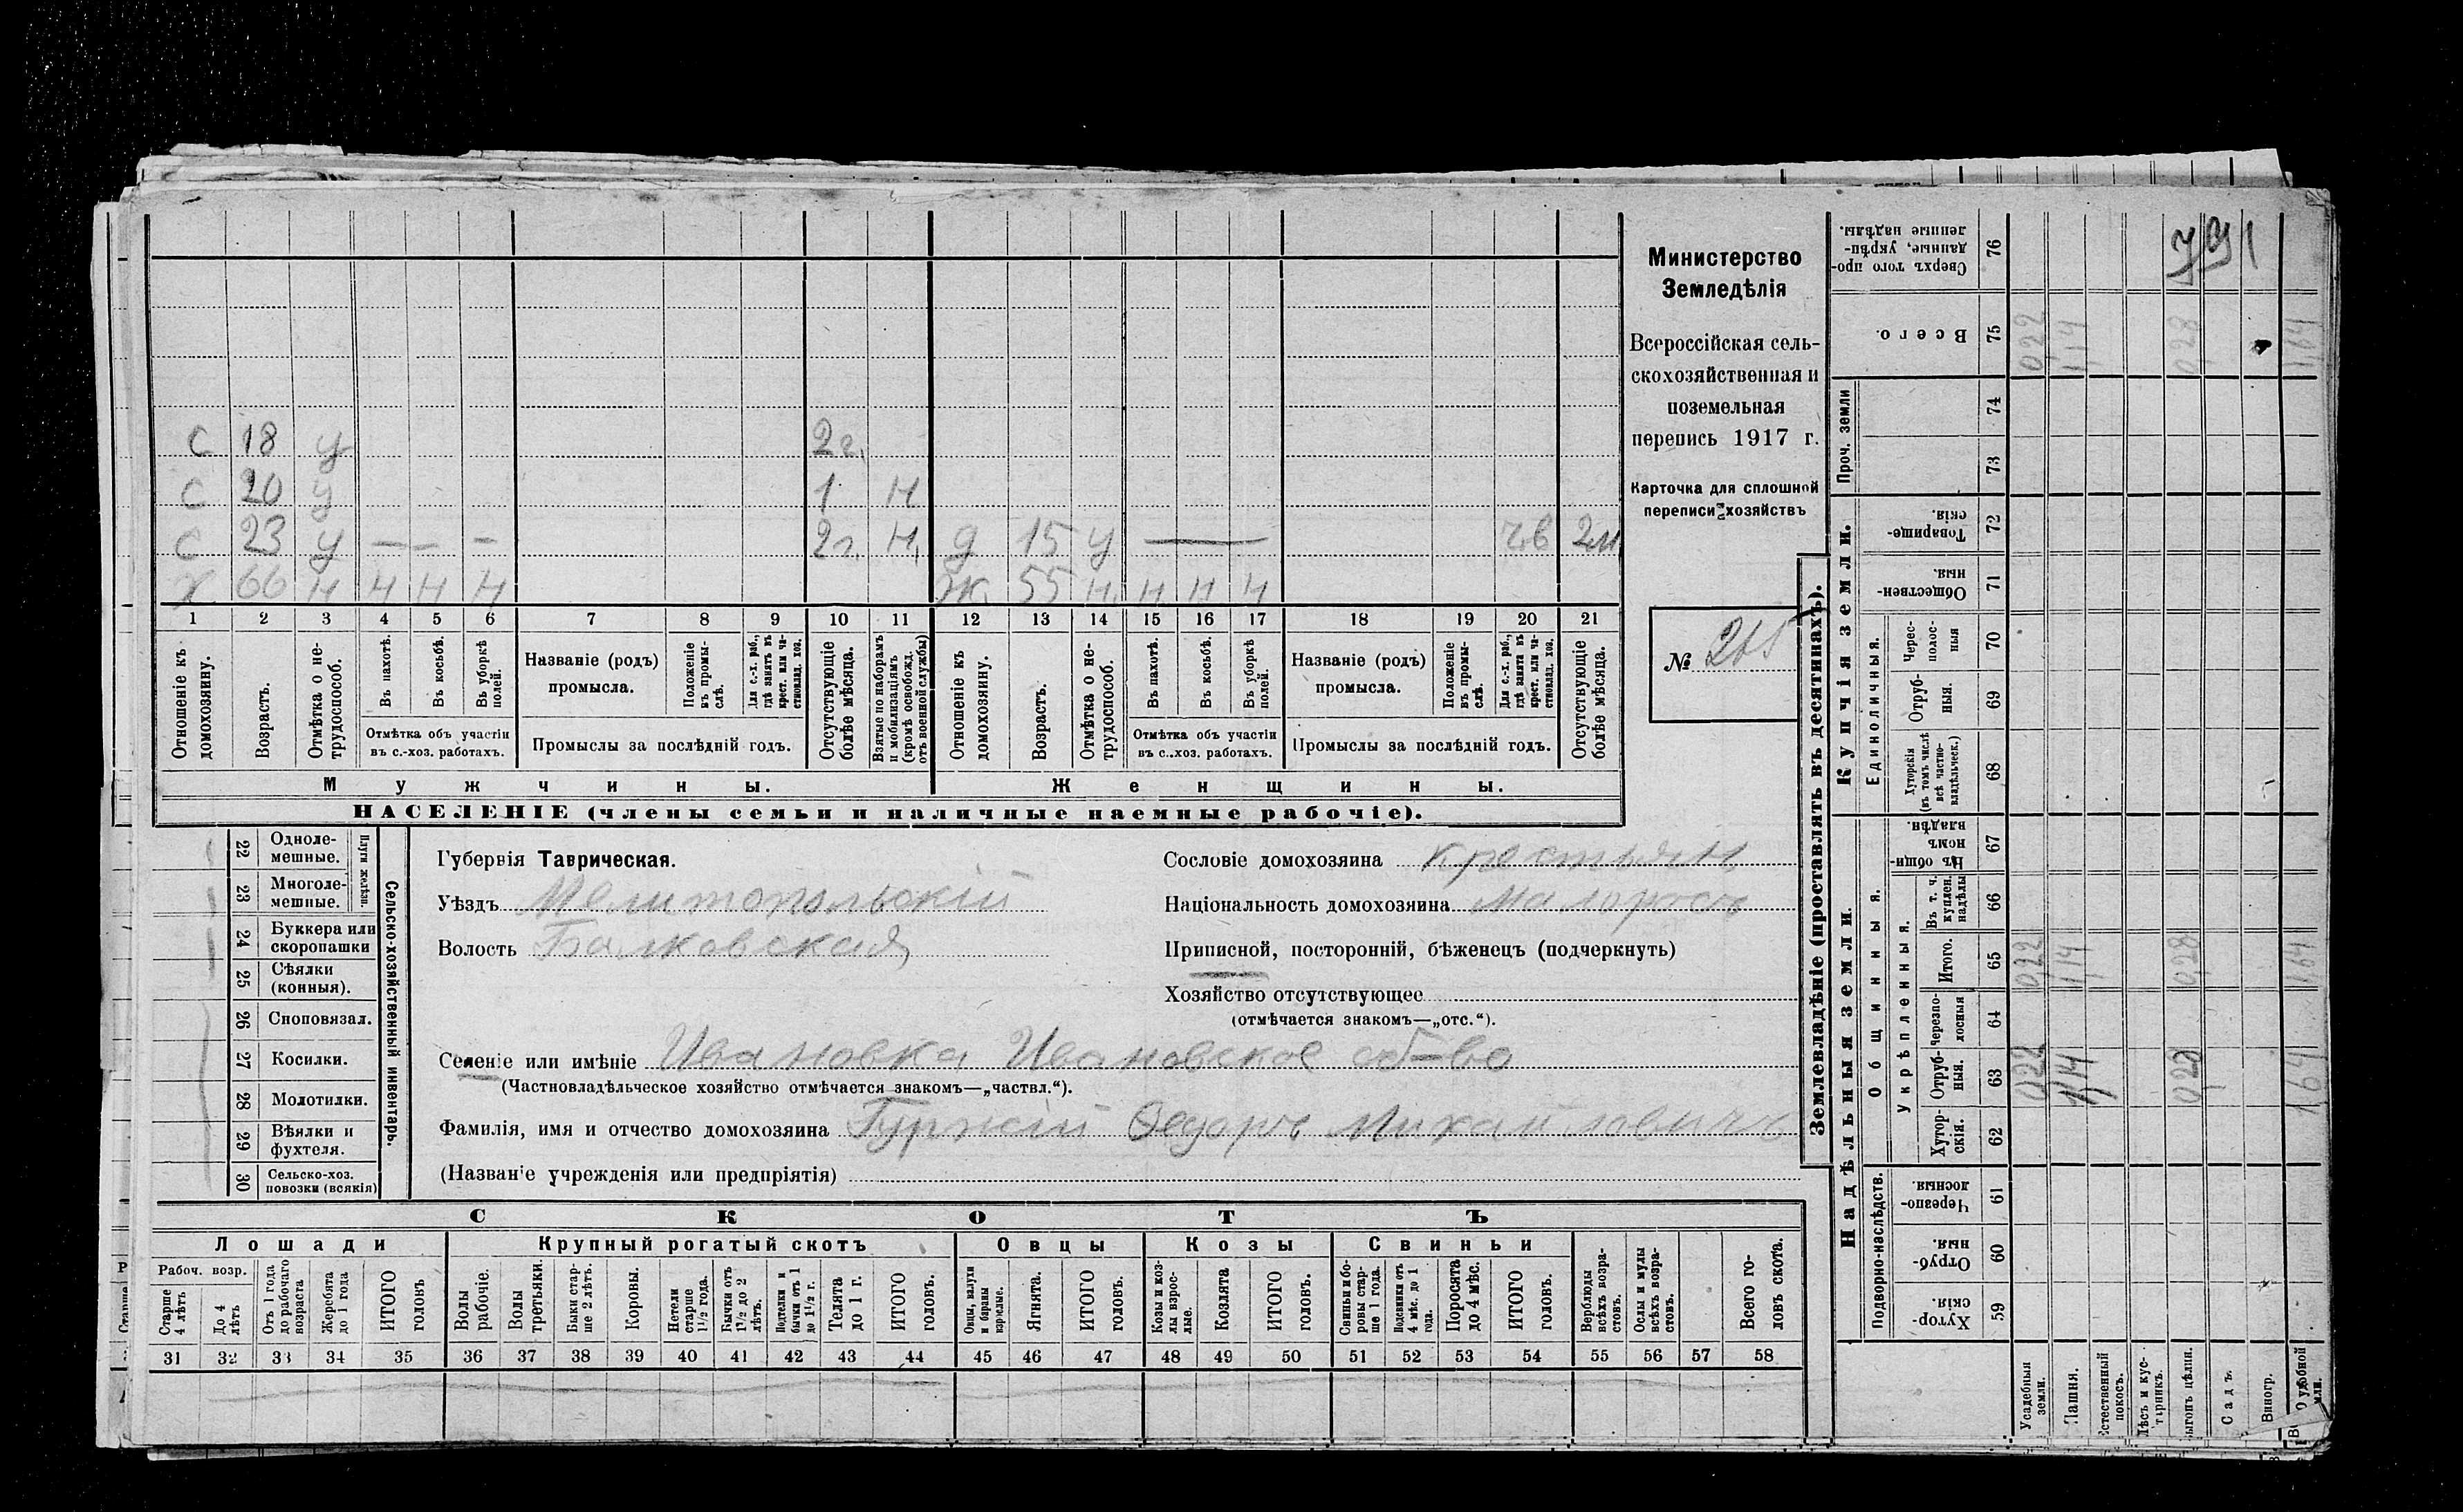 с 18 у 2 г.
с 20 у 1 н
с 23 у — — 2 г. н. д 15 у — 2 м
х 66 н н н н ж 55 н н н н
1 2 3 4 5 6 7 8 9 10 11 12 13 14 15 16 17 18 19 20 21
Отношеніе къ домохозяину.
Возрастъ.
Отмѣтка о нетрудоспособ.
Въ пахотѣ.
Въ косьбѣ.
Въ уборкѣ полей.
Отмѣтка объ участіи
въ с.-хоз. работахъ.
Названіе (родъ)
промысла.
Положеніе въ промы-слѣ.
Для с.-х. раб., гдѣ занятъ въ крест. или ча-стновлад. хоз.
Промыслы за послѣдній годъ.
Отсутствующіе болѣе мѣсяца.
Взятые по наборамъ и мобилизаціямъ (кромѣ освобожд. отъ военной службы)
Отношеніе къ домохозяину.
Возрастъ.
Отмѣтка о не-трудоспособ.
Въ пахотѣ.
Въ косьбѣ.
Въ уборкѣ полей.
Отмѣтка объ участіи
въ с.-хоз. работахъ.
Названіе (родъ)
промысла.
Положеніе въ промы-слѣ.
Для с.-х. раб., гдѣ занята въ крест. или ча-стновлад. хоз.
Промыслы за послѣдній годъ.
Отсутствующіе болѣе мѣсяца.
Мужчины. Женщины.
НАСЕЛЕНІЕ (члены семьи и наличные наемные рабочіе).
Министерство
Земледѣлія
Всероссійская сель-
скохозяйственная и
поземельная
перепись 1917 г.
Карточка для сплошной
переписи хозяйствъ
№ 265
22 Одноле-мешные.
23 Многоле-мешные.
Плуги желѣзн.
24 Буккера или скоропашки
25 Сѣялки (конныя).
26 Сноповязал.
27 Косилки.
28 Молотилки.
29 Вѣялки и фухтеля.
30 Сельско-хоз. повозки (всякія)
Сельско-хозяйственный инвентарь.
Губернія Таврическая.
Уѣздъ Мелитопольскій
Волость Балковская
Сословіе домохозяина крестьян
Національность домохозяина малороссъ
Приписной, посторонній, бѣженецъ (подчеркнуть)
Хозяйство отсутствующее
(отмѣчается знакомъ—„отс.“).
Селеніе или имѣніе Ивановка Ивановское об-во
(Частновладѣльческое хозяйство отмѣчается знакомъ—„частвл.“).
Фамилія, имя и отчество домохозяина Гуржій Ѳедоръ Михайловичъ
(Названіе учрежденія или предпріятія)
СКОТЪ
Лошади Крупный рогатый скотъ Овцы Козы Свиньи
Рабоч. возр.
Старше 4 лѣтъ
До 4 лѣтъ
Отъ 1 года до рабочаго возраста
Жеребята до 1 года
ИТОГО головъ
Волы рабочіе.
Волы третьяки.
Быки стар-ше 2 лѣтъ.
Коровы.
Нетели старше 1½ года.
Бычки отъ 1½ до 2 лѣтъ.
Подтелки и бычки отъ 1 до 1½ г.
Телята до 1 г.
ИТОГО головъ.
Овцы, валухи и бараны взрослые.
Ягнята.
ИТОГО головъ.
Козы и коз-лы взрос-лые.
Козлята
ИТОГО головъ.
Свиньи и бо-ровы стар-ше 1 года.
Подсвинки отъ 4 мѣс. до 1 года.
Поросята до 4 мѣс.
ИТОГО головъ.
Верблюды всѣхъ возра-стовъ.
Ослы и мулы всѣхъ возра-стовъ.
Всего го-ловъ скота.
31 32 33 34 35 36 37 38 39 40 41 42 43 44 45 46 47 48 49 50 51 52 53 54 55 56 57 58
Землевладѣніе (проставлять въ десятинахъ).
Надѣльныя земли.
Купчія земли.
Проч. земли
Подворно-наслѣдств.
Общинныя.
Укрѣпленныя.
Единоличныя.
Сверхъ того про-данные, укрѣп-ленные надѣлы. 76
Всего. 75 0,22 1,14 0,28 1,64
74
73
Товарище-скія. 72
Обществен-ныя. 71
Черес-полос-ныя 70
Отруб-ныя. 69
Хуторскія (въ томъ числѣ всѣ частно-владѣльческ.) 68
Въ общин-номъ владѣн. 67
Въ т. ч. куплен. надѣлы 66
Итого. 65 0,22 1,14 0,28 1,64
черезпо-лосныя 64
Отруб-ныя. 63 0,22 1,14 0,28 1,64
Хутор-скія. 62
Черезпо-лосныя. 61
Отруб-ныя. 60
Хутор-скія. 59
Усадебныя земли.
Пашня.
Естественный покосъ.
Лѣсъ и кус-тарникъ.
Выгонъ цѣлин.
Садъ.
Виногр.